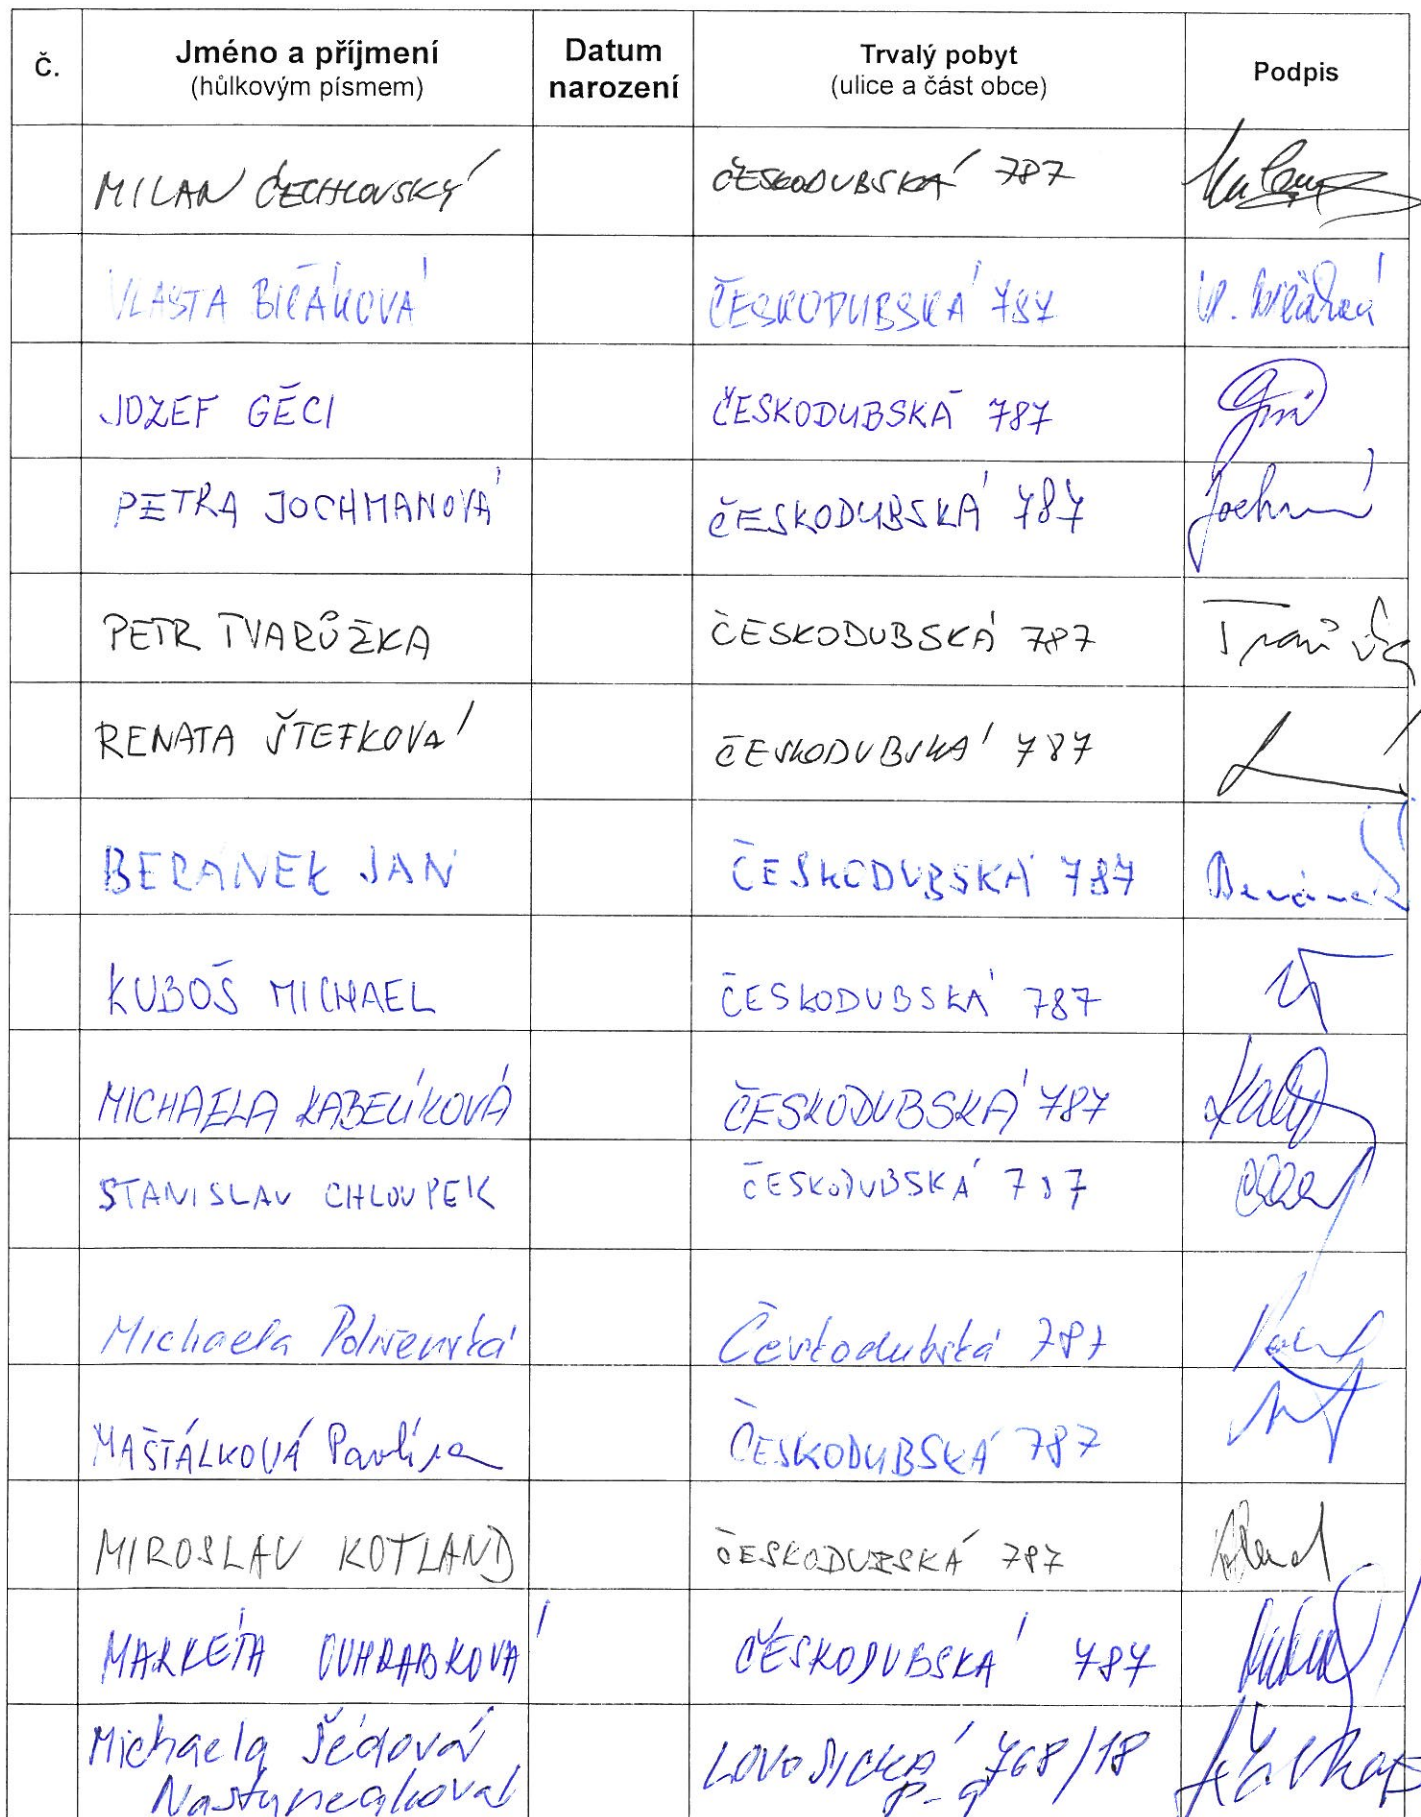 Č. Jméno a příjmení Datum Trvalý pobyt Podpis
(hůlkovým písmem) narození (ulice a část obce)
MILAN ČECHLOVSKÝ ČESKODUBSKÁ 787
VLASTA BIČÁKOVÁ ČESKODUBSKÁ 787
JOZEF GÉCI ČESKODUBSKÁ 787
PETRA JOCHMANOVÁ ČESKODUBSKÁ 787
PETR TVARŮŽKA ČESKODUBSKÁ 787
RENATA ŠTEFKOVÁ ČESKODUBSKÁ 787
BERANEK JAN ČESKODUBSKÁ 787
KUBOŠ MICHAEL ČESKODUBSKÁ 787
MICHAELA KABELÍKOVÁ ČESKODUBSKÁ 787
STANISLAV CHLOUPEK ČESKODUBSKÁ 787
Michaela Českodubská 787
MAŠTÁLKOVÁ Pavlína ČESKODUBSKÁ 787
MIROSLAV KOTLAND ČESKODUBSKÁ 787
MARKÉTA ČESKODUBSKÁ 787
Michaela Šédová LOVOSICKÁ 768/18